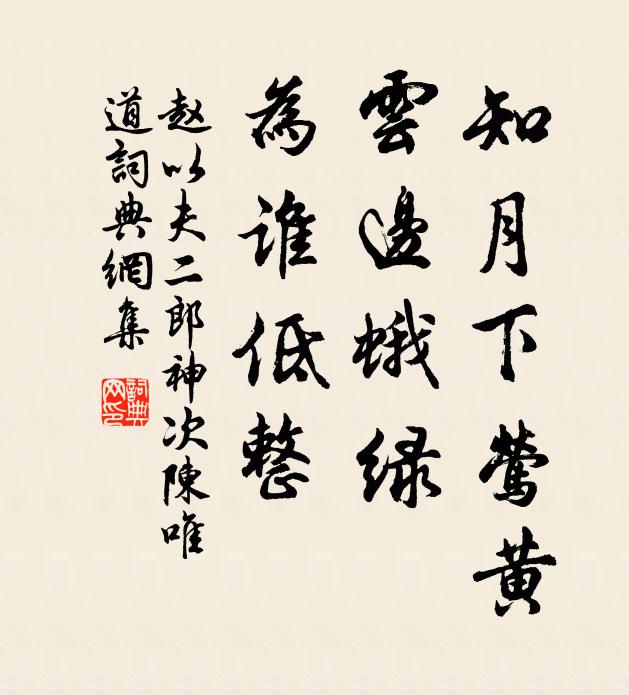 知月下莺黄
雲邊蛾绿
為谁低整
赵以夫二郎神次陳唯
道詞典網集
詞典
网印